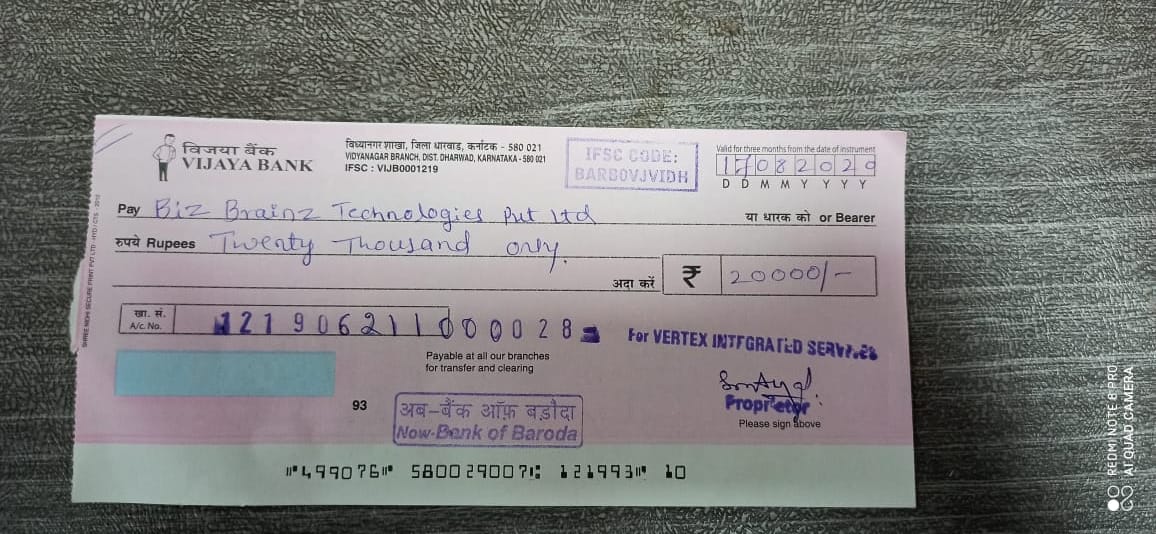 विजया बैंक
VIJAYA BANK
विद्यानगर शाखा, जिला धारवाड, कर्नाटक - 580 021
VIDYANAGAR BRANCH, DIST. DHARWAD, KARNATAKA - 580 021
IFSC : VIJB0001219
IFSC CODE:
BARB0VJVIDH
Valid for three months from the date of instrument
17082029
D D M M Y Y Y Y
Pay Biz Brainz Technologies Pvt Ltd या धारक को or Bearer
रुपये Rupees Twenty Thousand only.
अदा करें ₹ 20000/-
खा. सं.
A/c. No. 121906211000028
For VERTEX INTEGRATED SERVICES
Payable at all our branches
for transfer and clearing
Proprietor
Please sign above
93
अब-बैंक ऑफ़ बड़ौदा
Now-Bank of Baroda
⑈499076⑈ 580029007⑆ 121993⑈ 10
SHREE NIDHI SECURE PRINT PVT LTD - HYD / CTS 2010
REDMI NOTE 8 PRO
AI QUAD CAMERA